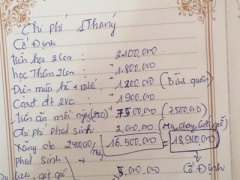 Chi phí 1 Tháng
Cố Định
Tiền học 2 con : 2.100.000
Học Thêm 2 con : 1.800.000
Điện nước + : 1.200.000 (Bình quân)
Card đt 2vc : 1.900.000
Tiền ăn mỗi ngày : + 7500.000 (7500.000)
Chi Phí Phát Sinh : 2.000.000 (Ma, chay, cưới, giỗ)
Xăng 240000/ 16.500.000 = 18.900.000
phát Sinh
5.000.000 Cố Định